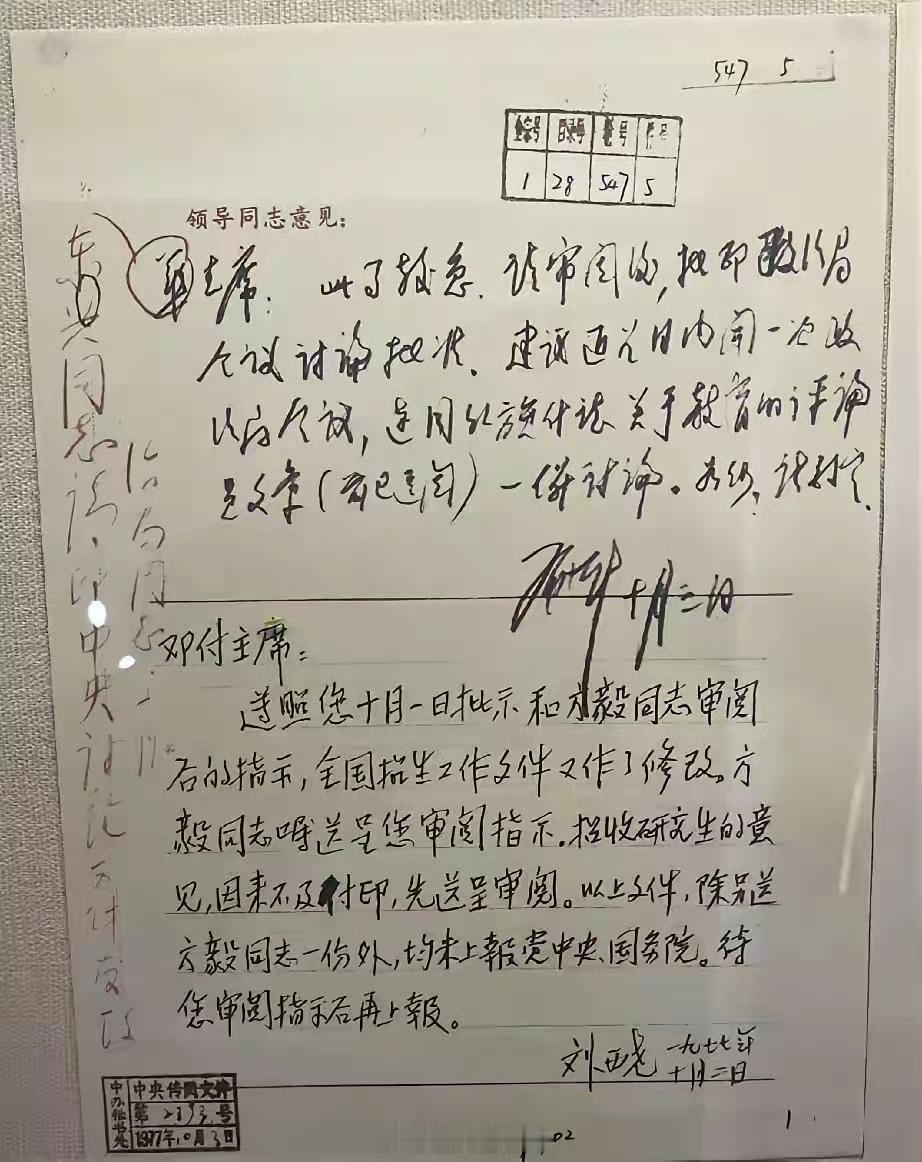 547 5
全宗号 目录号 卷号 件号
1 28 547 5
领导同志意见：
华主席：此事较急，请审阅后，批印政治局
会议讨论批准。建议近几日内开一次政
治局会议，连同红旗杂志关于教育的评论
员文章（前已送阅）一併讨论。如何，请批示。
十月三日
东兴同志请印中央讨论文件发政
治局同志
邓付主席：
遵照您十月一日批示和方毅同志审阅
后的指示，全国招生工作文件又作了修改。方
毅同志嘱送呈您审阅指示。招收研究生的意
见，因来不及付印，先送呈审阅。以上文件，除另送
方毅同志一份外，均未上報党中央、国务院。待
您审阅指示后再上報。
刘西尧 一九七七年
十月二日
中办秘书处
中央传阅文件
第 2393 号
1977年10月3日
1
02